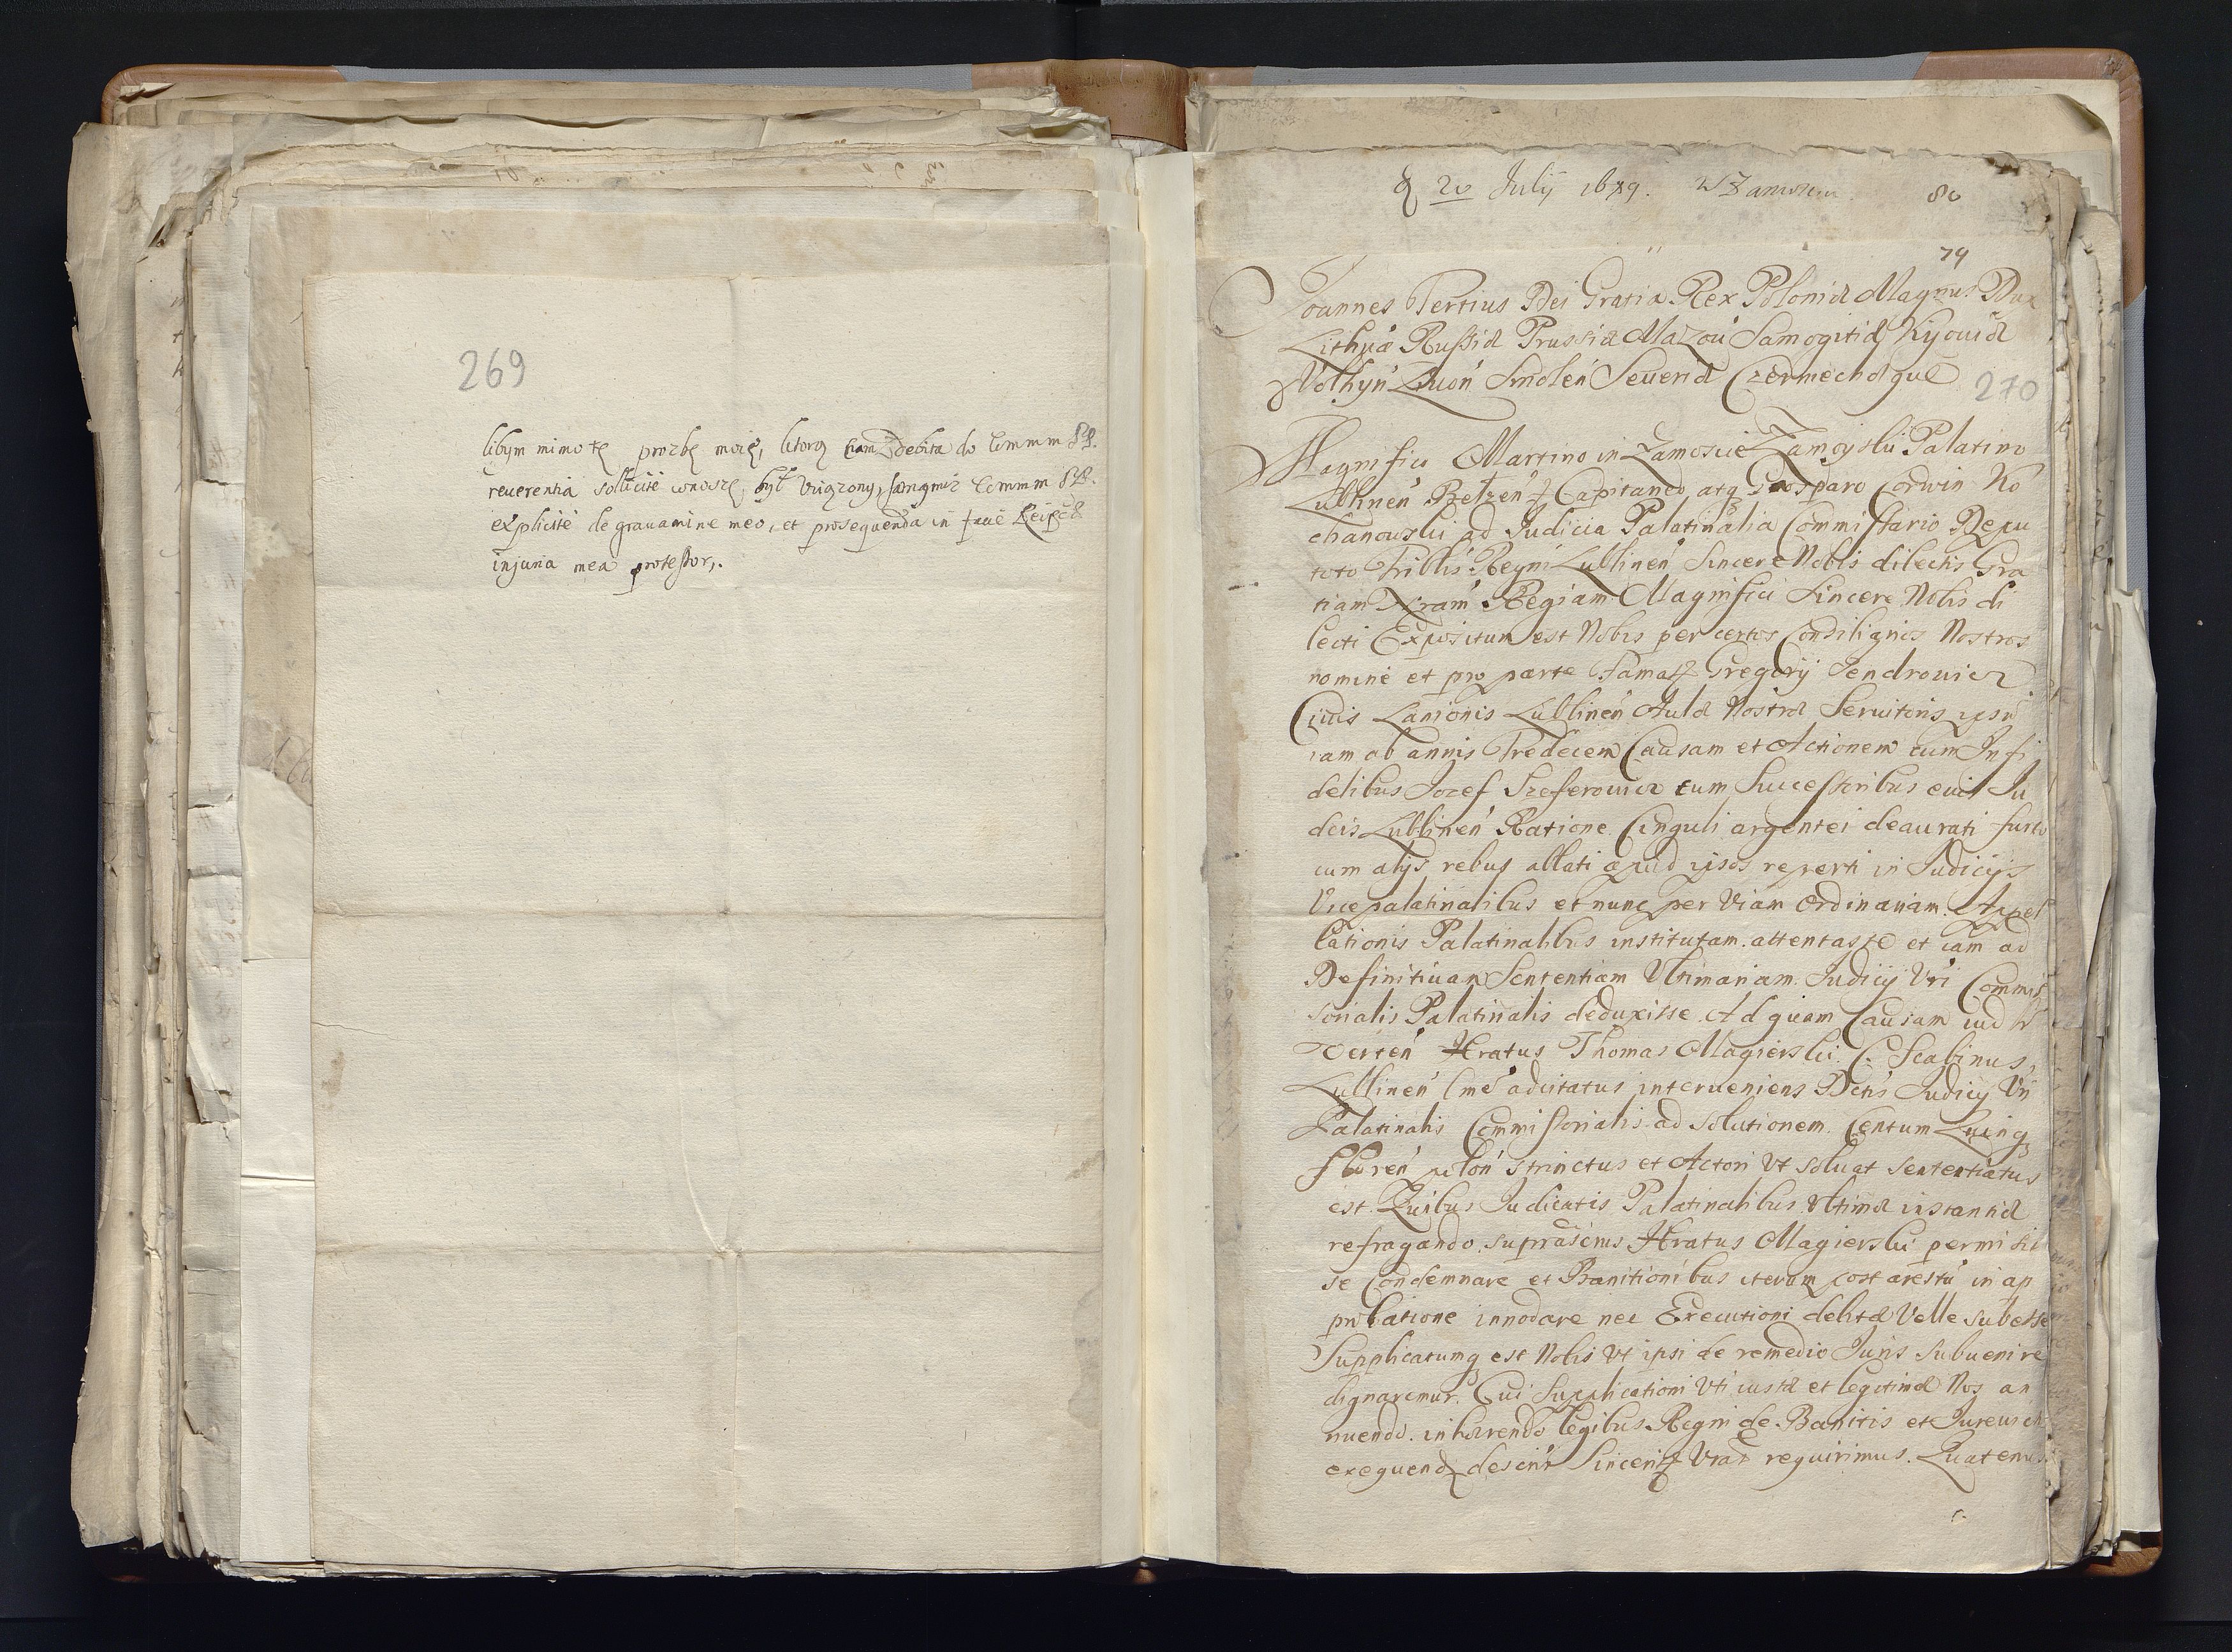 269
libym mimo tę prozbę moię, ktorą cum debita do Cmmm PP.
reuerentia sollicite wnoszę, był
explicite de grauamine meo, et prosequenda in
injuria mea protestor,.
20 July 1689. w Zamosciu
80
79
Joannes Tertius Dei Gratia Rex Poloniæ Magnus Dux
Lithuæ Russiæ Prussiæ Mazou Samogitiæ Kyouiæ
Volhyn Liuon Smolen Seueriæ Czerniechoqué
270
Magnifico Martino in Zamoscie Zamoyski Palatino
Lublinen Belzen Capitaneo atq Gasparo Corwin Ko
chanowski ad Judicia Palatinalia Commissario Depu
tato Triblis Regni Lublinen Sincere Nobis dilectis Gra
tiam Nram Regiam. Magnifici Sincere Nobis di
lecti Expositum est Nobis per certos Consiliarios Nostros
nomine et pro parte Famati Gregorij Jendrowicz
Ciuis Lanionis Lublinen Aulæ Nostræ Seruitoris ipsu
iam ab annis Tredecem Causam et Actionem cum Infi
delibus Jozef Szeferowicz cum Successoribus eius Ju
dæis Lublinen Ratione Cinguli argentei deaurati furto
cum alijs rebus ablati apud ipsos reperti in Judicijs
Vicepalatinalibus et nunc per Viam ordinariam Appel
lationis Palatinalibus institutam attentasse et iam ad
Definitiuam Sententiam Vltimariam Judicij Vri Commis
sorialis Palatinalis deduxisse. Ad quam Causam
verten Hratus Thomas Magierski C. Scabinus
Lublinen adcitatus interueniens Dctis Judicij Vri
Palatinalis Commissorialis ad solutionem Centum Quinq
Floren polon strinctus et Actori vt soluat sententiatus
est. Quibus Judicatis Palatinalibus Vltimæ instantiæ
refragando suprascrius Hratus Magierski permisit
se Condemnare et Banitionibus iterum post arestu in ap
probatione innodare nec Executioni debitæ Velle subesse
Supplicatumq est Nobis vt ipsi de remedio Juris subuenire
dignaremur. Cui Supplicationi Vti iustæ et legitimæ Nos an
nuendo inhærendo legibus Regni de Banitis et Jureuictis
exequend descrir Sincerit Vras requirimus. Quatenus